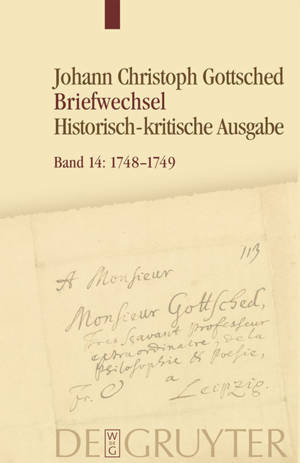 Johann Christoph Gottsched
Briefwechsel
Historisch-kritische Ausgabe
Band 14: 1748–1749
113
A Monsieur
Monsieur Gottsched,
Tres Scavant Professeur
extraordinaire, de la
Philosophie & Poesie,
Fr. a
Leipzig.
DE GRUYTER